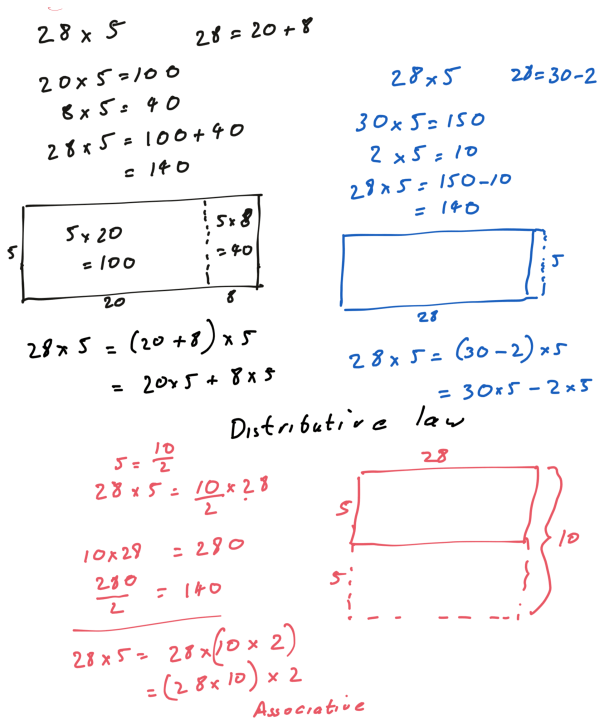 28 × 5 28 = 20 + 8
20 × 5 = 100
8 × 5 = 40
28 × 5 = 100 + 40
= 140
5 × 20
= 100
5 × 8
= 40
5
20 8
28 × 5 = (20 + 8) × 5
= 20 × 5 + 8 × 5
28 × 5 28 = 30 - 2
30 × 5 = 150
2 × 5 = 10
28 × 5 = 150 - 10
= 140
5
28
28 × 5 = (30 - 2) × 5
= 30 × 5 - 2 × 5
Distributive law
5 = 10/2
28 × 5 = 10/2 × 28
10 × 28 = 280
280/2 = 140
28 × 5 = 28 × (10 × 2)
= (28 × 10) × 2
Associative
28
5
10
5